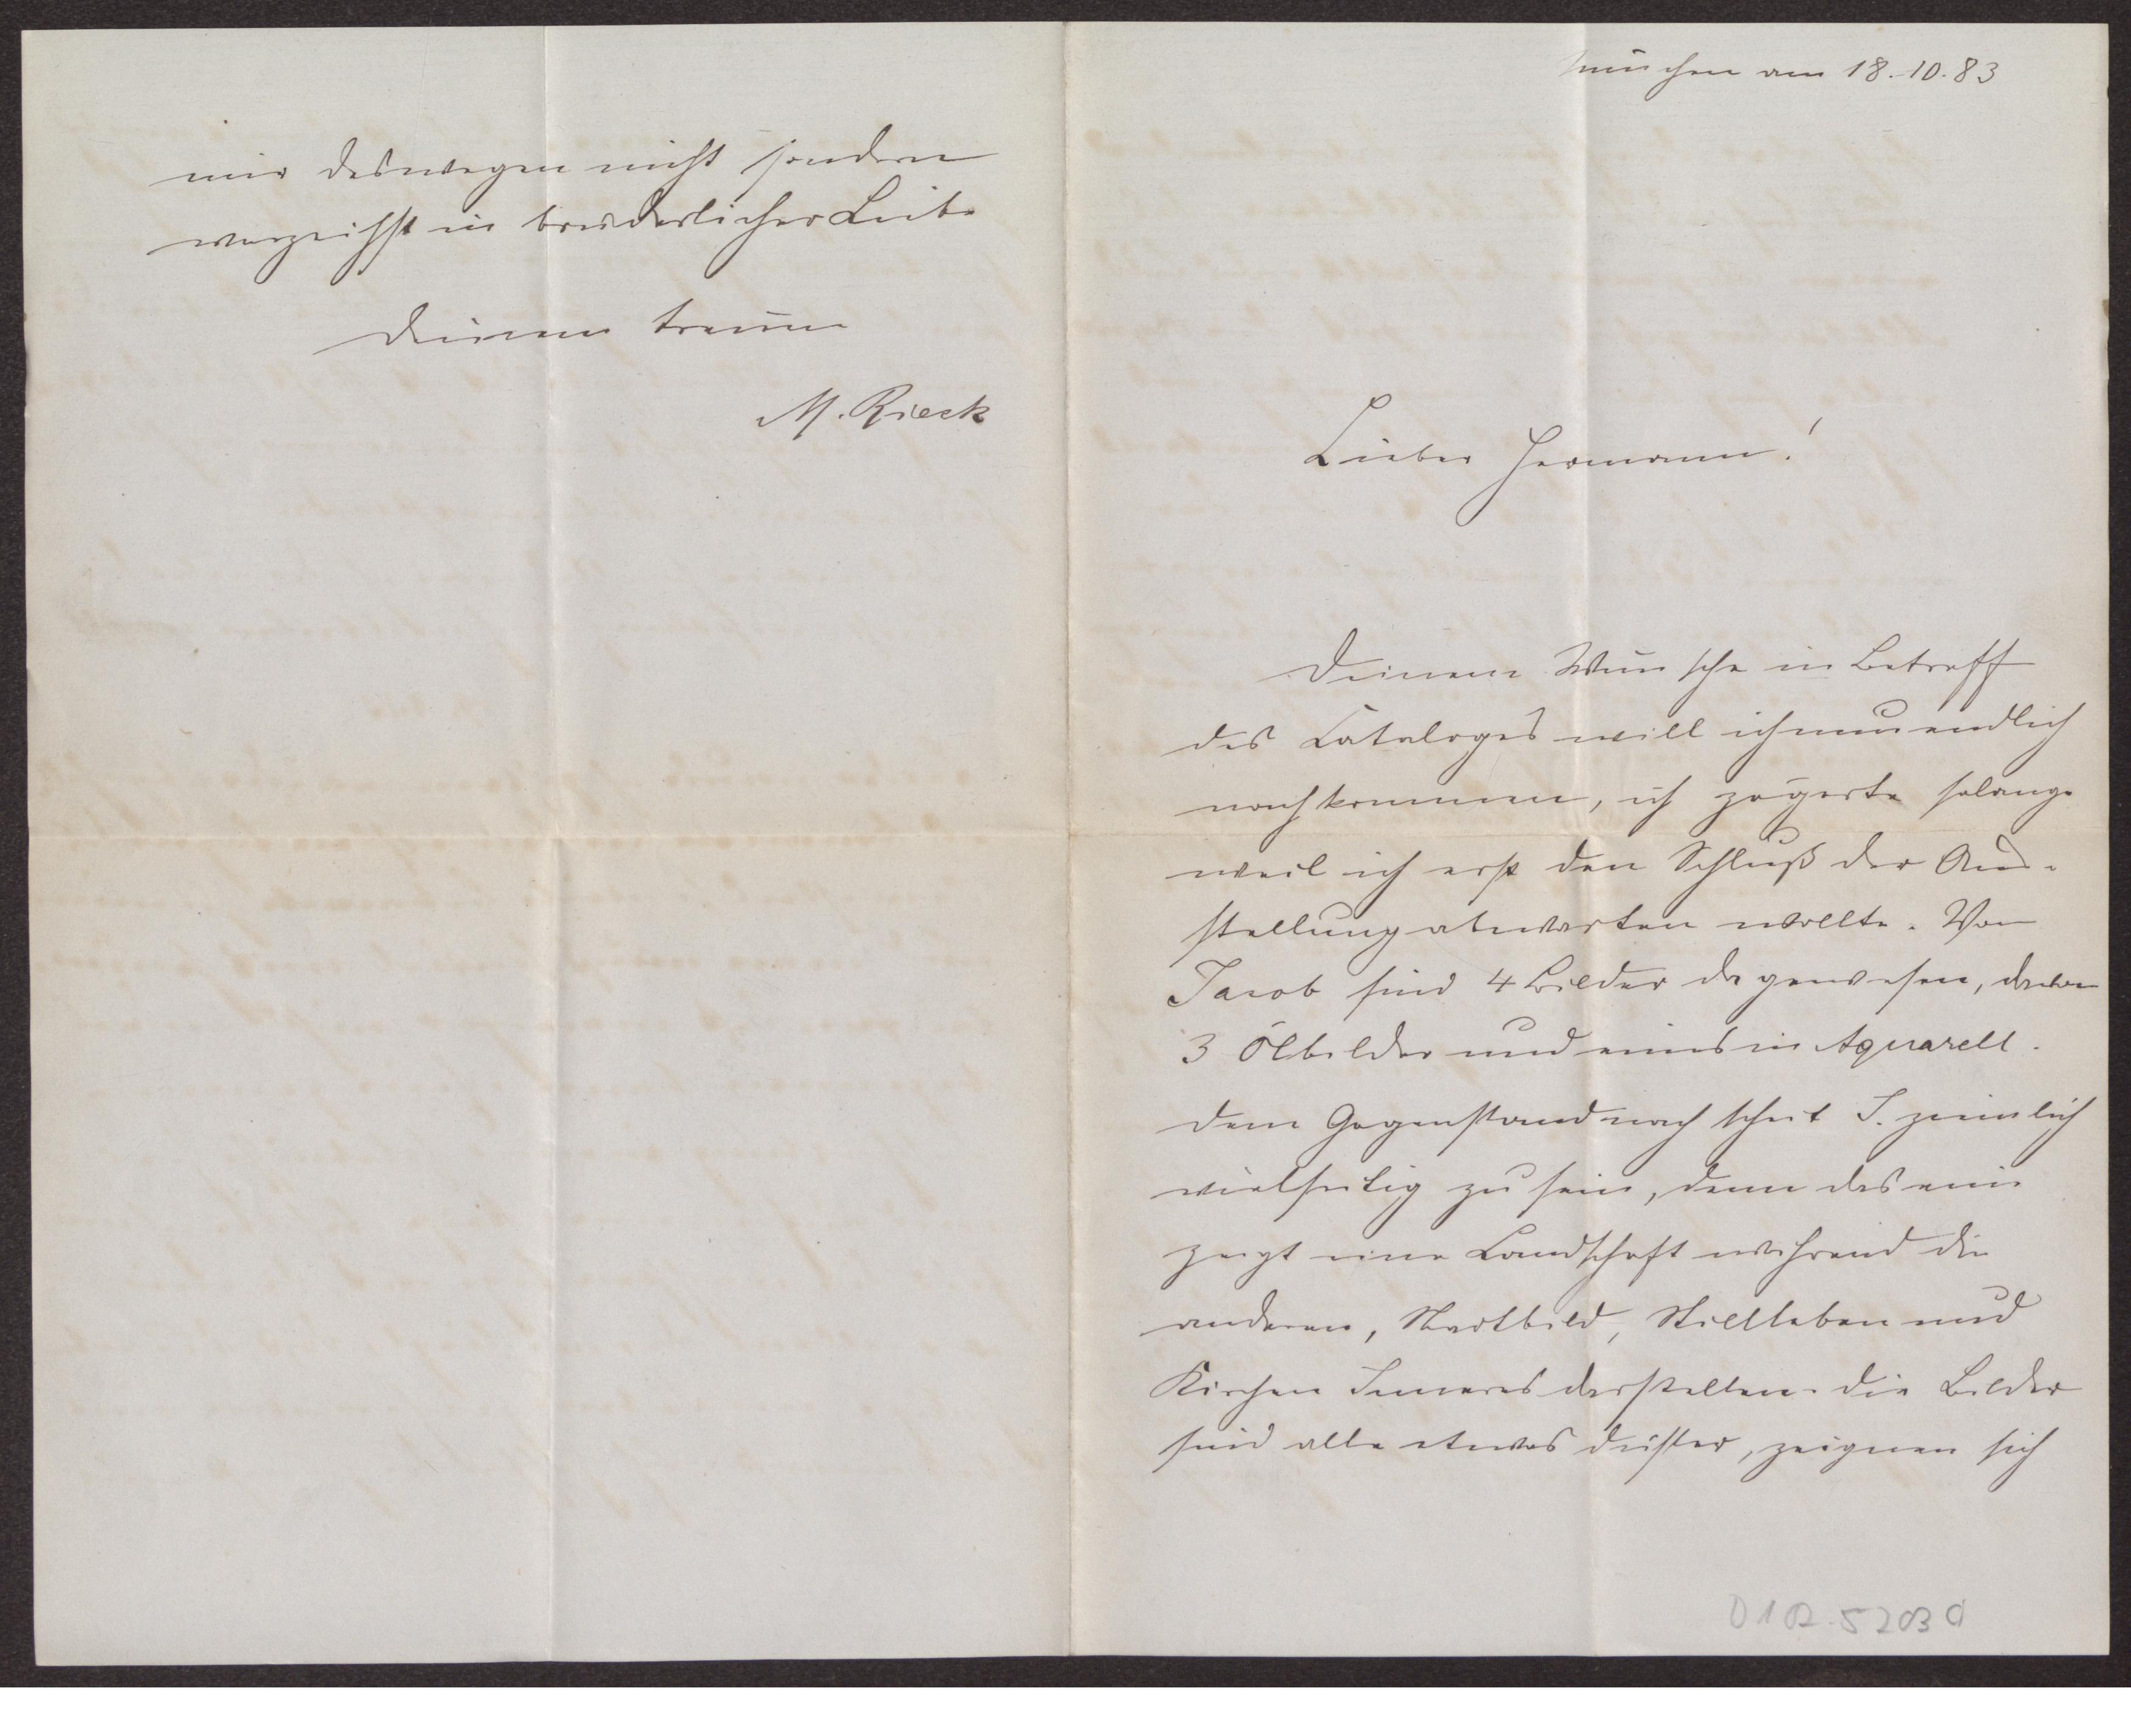 mir deswegen nicht sondern
verzeihst in brüderlicher Liebe
Deinem treuen
M. Rieck
München am 18.10.83
Lieber Hermann!
Deinem Wunsche in Betreff
des Cataloges will ich nun endlich
nachkommen, ich zögerte solange
weil ich erst den Schluß der Aus-
stellung abwarten wollte. Von
Jacob sind 4 Bilder da gewesen, davon
3 Ölbilder und eines in Aquarell.
Dem Gegenstand nach scheint J. ziemlich
vielseitig zu sein, denn das eine
zeigt eine Landschaft während die
anderen, Stadtbild, Stillleben und
Kirchen Inneres darstellen. Die Bilder
sind alle etwas düster, zeignen sich